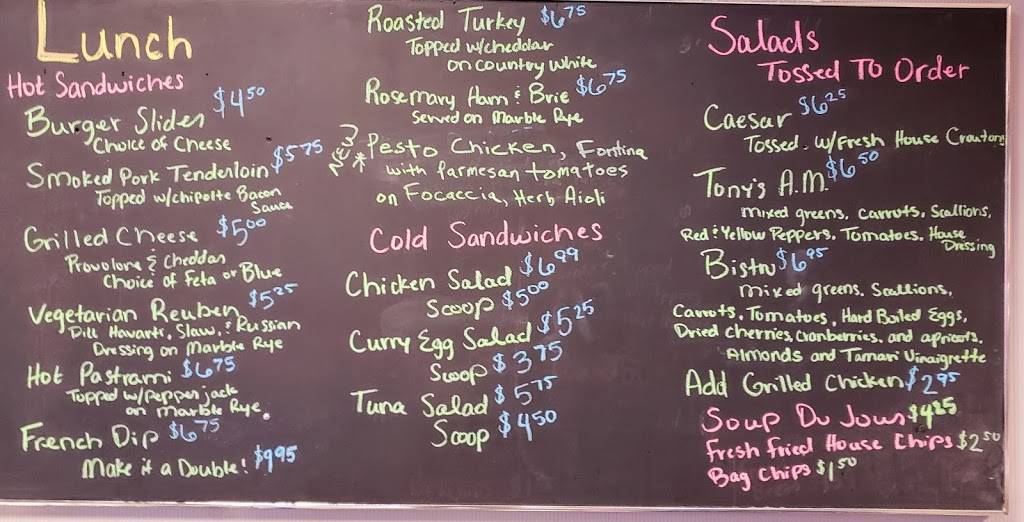 Lunch
Hot Sandwiches
Burger Slider $4.50
Choice of Cheese
Smoked Pork Tenderloin $5.75
Topped w/chipolte Bacon
Sauce
Grilled Cheese $5.00
Provolone & Cheddar
Choice of Feta or Blue
Vegetarian Reuben $5.25
Dill Havarti, Slaw, & Russian
Dressing on Marble Rye
Hot Pastrami $6.75
Topped w/pepperjack
on marble Rye.
French Dip $6.75
Make it a Double! $9.95
Roasted Turkey $6.75
Topped w/cheddar
on country white
Rosemary Ham & Brie $6.75
Served on Marble Rye
NEW * Pesto Chicken, Fontina
with parmesan tomatoes
on Focaccia, Herb Aioli
Cold Sandwiches
Chicken Salad $6.99
Scoop $5.00
Curry Egg Salad $5.25
Scoop $3.75
Tuna Salad $5.75
Scoop $4.50
Salads
Tossed To Order
Caesar $6.25
Tossed w/Fresh House Croutons
Tony's A.M. $6.50
mixed greens, carrots, Scallions,
Red & Yellow Peppers, Tomatoes, House
Dressing
Bistro $6.95
mixed greens, Scallions,
Carrots, Tomatoes, Hard Boiled Eggs,
Dried Cherries, Cranberries, and apricots,
Almonds and Tamari Vinaigrette
Add Grilled Chicken $2.95
Soup Du Jour $4.25
Fresh Fried House Chips $2.50
Bag Chips $1.50